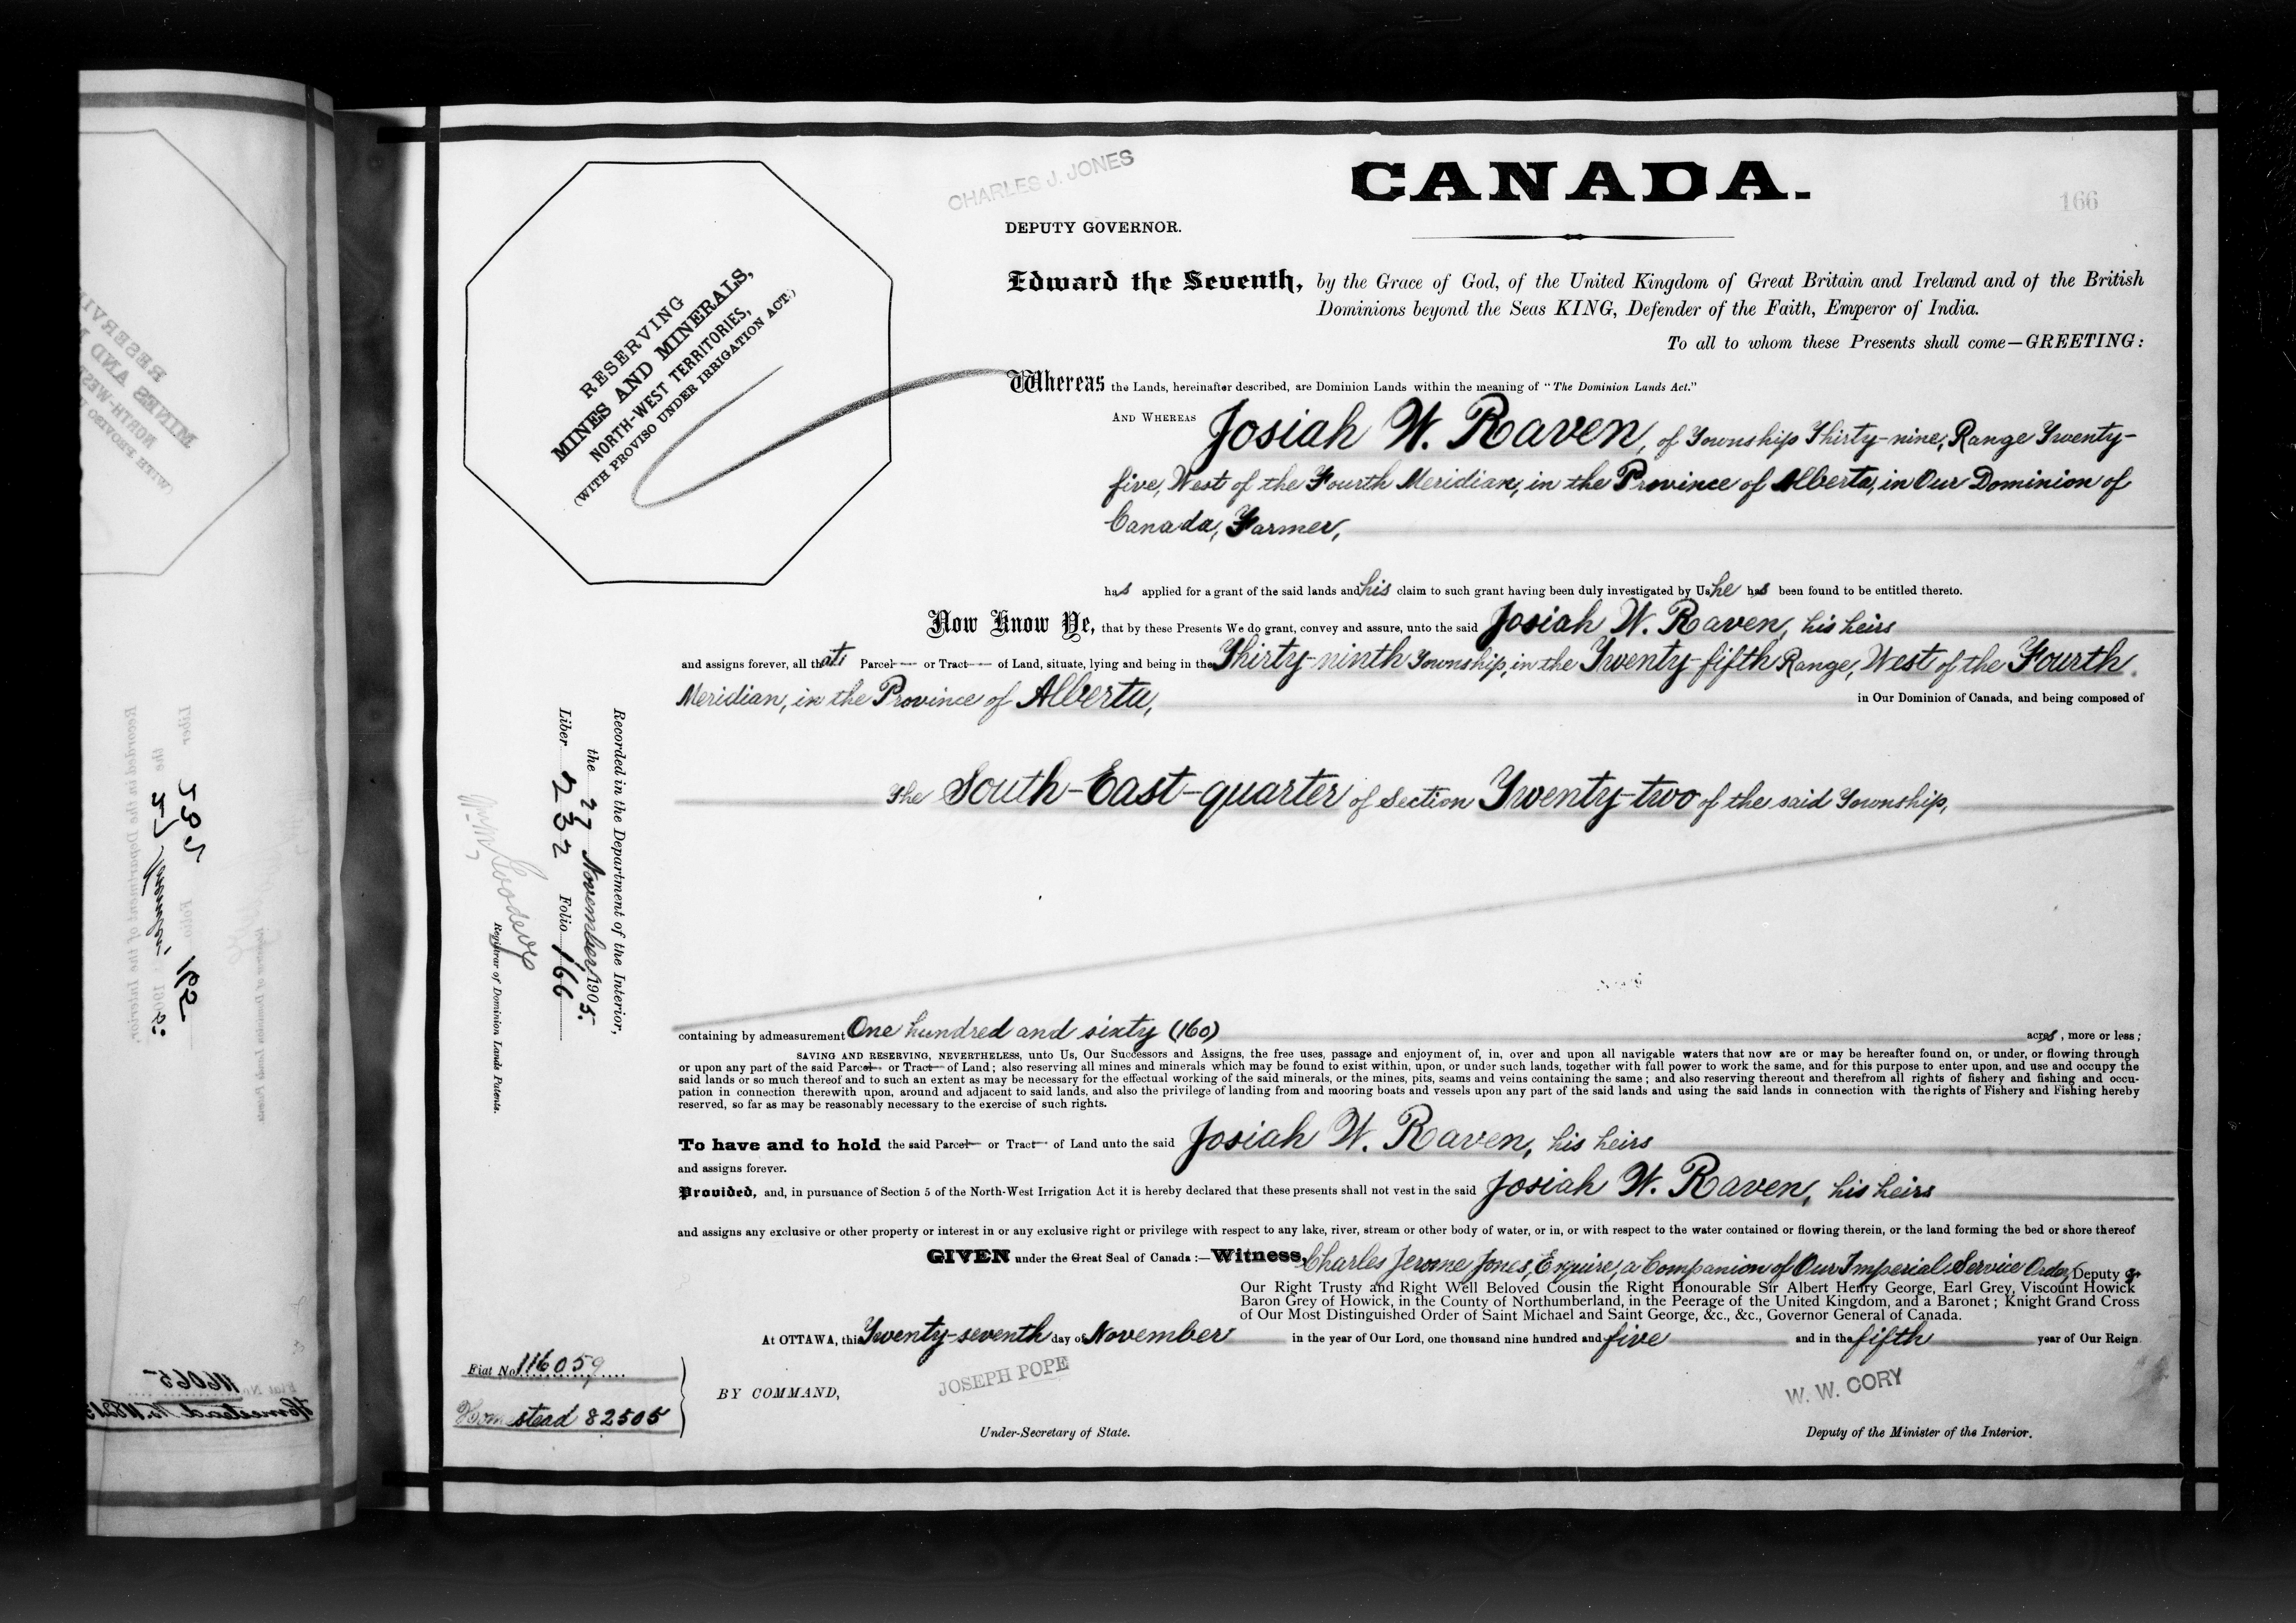 CHARLES J. JONES
DEPUTY GOVERNOR.
CANADA.
166
RESERVING
MINES AND MINERALS,
NORTH-WEST TERRITORIES,
(WITH PROVISO UNDER IRRIGATION ACT.)
Edward the Seventh, by the Grace of God, of the United Kingdom of Great Britain and Ireland and of the British
Dominions beyond the Seas KING, Defender of the Faith, Emperor of India.
To all to whom these Presents shall come—GREETING:
Whereas the Lands, hereinafter described, are Dominion Lands within the meaning of "The Dominion Lands Act."
AND WHEREAS Josiah W. Raven, of Township Thirty-nine, Range Twenty-
five, West of the Fourth Meridian, in the Province of Alberta, in Our Dominion of
Canada, Farmer,
has applied for a grant of the said lands and his claim to such grant having been duly investigated by Us he has been found to be entitled thereto.
Now Know Ye, that by these Presents We do grant, convey and assure, unto the said Josiah W. Raven, his heirs
and assigns forever, all that Parcel or Tract of Land, situate, lying and being in the Thirty-ninth Township, in the Twenty-fifth Range, West of the Fourth
Meridian, in the Province of Alberta, in Our Dominion of Canada, and being composed of
The South-East-quarter of Section Twenty-two of the said Township,
containing by admeasurement One hundred and sixty (160) acres, more or less;
SAVING AND RESERVING, NEVERTHELESS, unto Us, Our Successors and Assigns, the free uses, passage and enjoyment of, in, over and upon all navigable waters that now are or may be hereafter found on, or under, or flowing through
or upon any part of the said Parcel or Tract of Land; also reserving all mines and minerals which may be found to exist within, upon, or under such lands, together with full power to work the same, and for this purpose to enter upon, and use and occupy the
said lands or so much thereof and to such an extent as may be necessary for the effectual working of the said minerals, or the mines, pits, seams and veins containing the same; and also reserving thereout and therefrom all rights of fishery and fishing and occu-
pation in connection therewith upon, around and adjacent to said lands, and also the privilege of landing from and mooring boats and vessels upon any part of the said lands and using the said lands in connection with the rights of Fishery and Fishing hereby
reserved, so far as may be reasonably necessary to the exercise of such rights.
To have and to hold the said Parcel or Tract of Land unto the said Josiah W. Raven, his heirs
and assigns forever.
Provided, and, in pursuance of Section 5 of the North-West Irrigation Act it is hereby declared that these presents shall not vest in the said Josiah W. Raven, his heirs
and assigns any exclusive or other property or interest in or any exclusive right or privilege with respect to any lake, river, stream or other body of water, or in, or with respect to the water contained or flowing therein, or the land forming the bed or shore thereof
GIVEN under the Great Seal of Canada:—Witness, Charles Jerome Jones, Esquire, a Companion of Our Imperial Service Order, Deputy of
Our Right Trusty and Right Well Beloved Cousin the Right Honourable Sir Albert Henry George, Earl Grey, Viscount Howick
Baron Grey of Howick, in the County of Northumberland, in the Peerage of the United Kingdom, and a Baronet; Knight Grand Cross
of Our Most Distinguished Order of Saint Michael and Saint George, &c., &c., Governor General of Canada.
At OTTAWA, this Twenty-seventh day of November in the year of Our Lord, one thousand nine hundred and five and in the fifth year of Our Reign
BY COMMAND,
JOSEPH POPE
Under-Secretary of State.
W. W. CORY
Deputy of the Minister of the Interior.
Fiat No. 116059
Homestead 82505
Recorded in the Department of the Interior,
the 27 November 1905.
Liber 232 Folio 166
Registrar of Dominion Lands Patents.